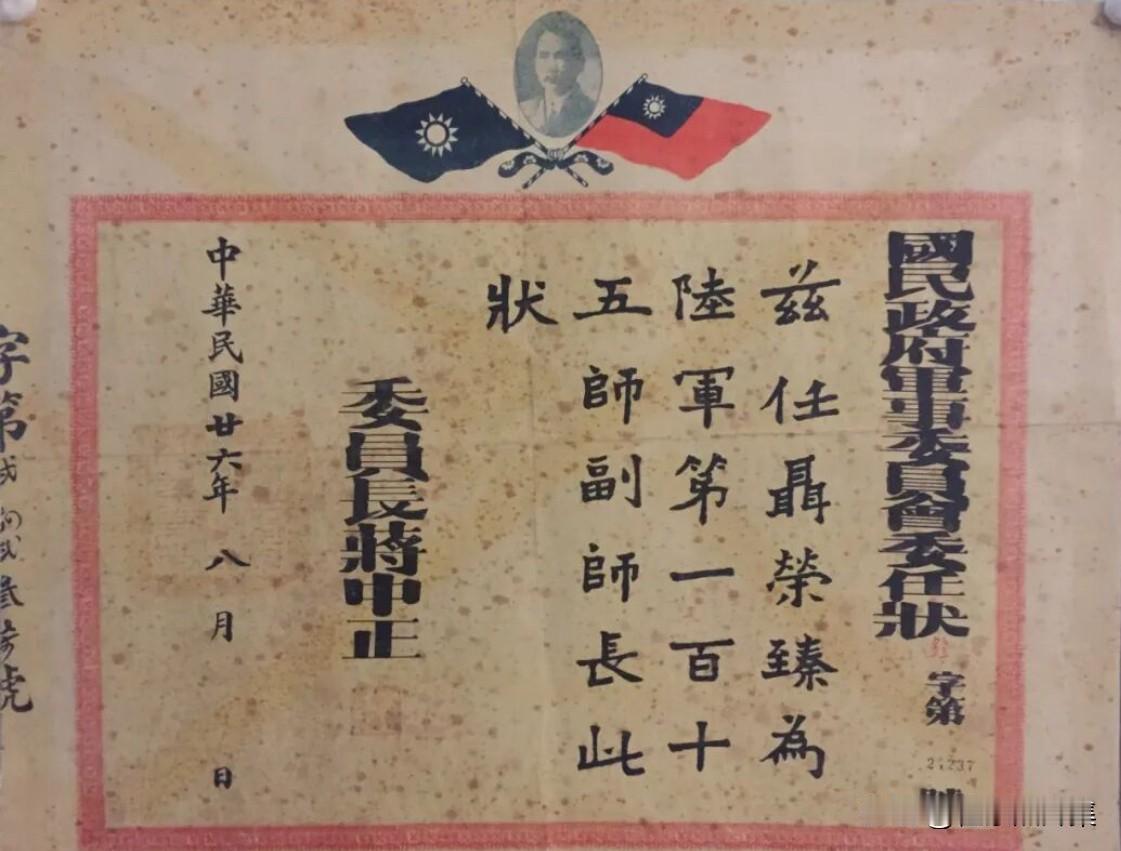 國民政府軍事委員會委任狀
字第
茲任聶榮臻為
陸軍第一百十
五師副師長此
狀
委員長蔣中正
中華民國廿六年八月日
字第
號